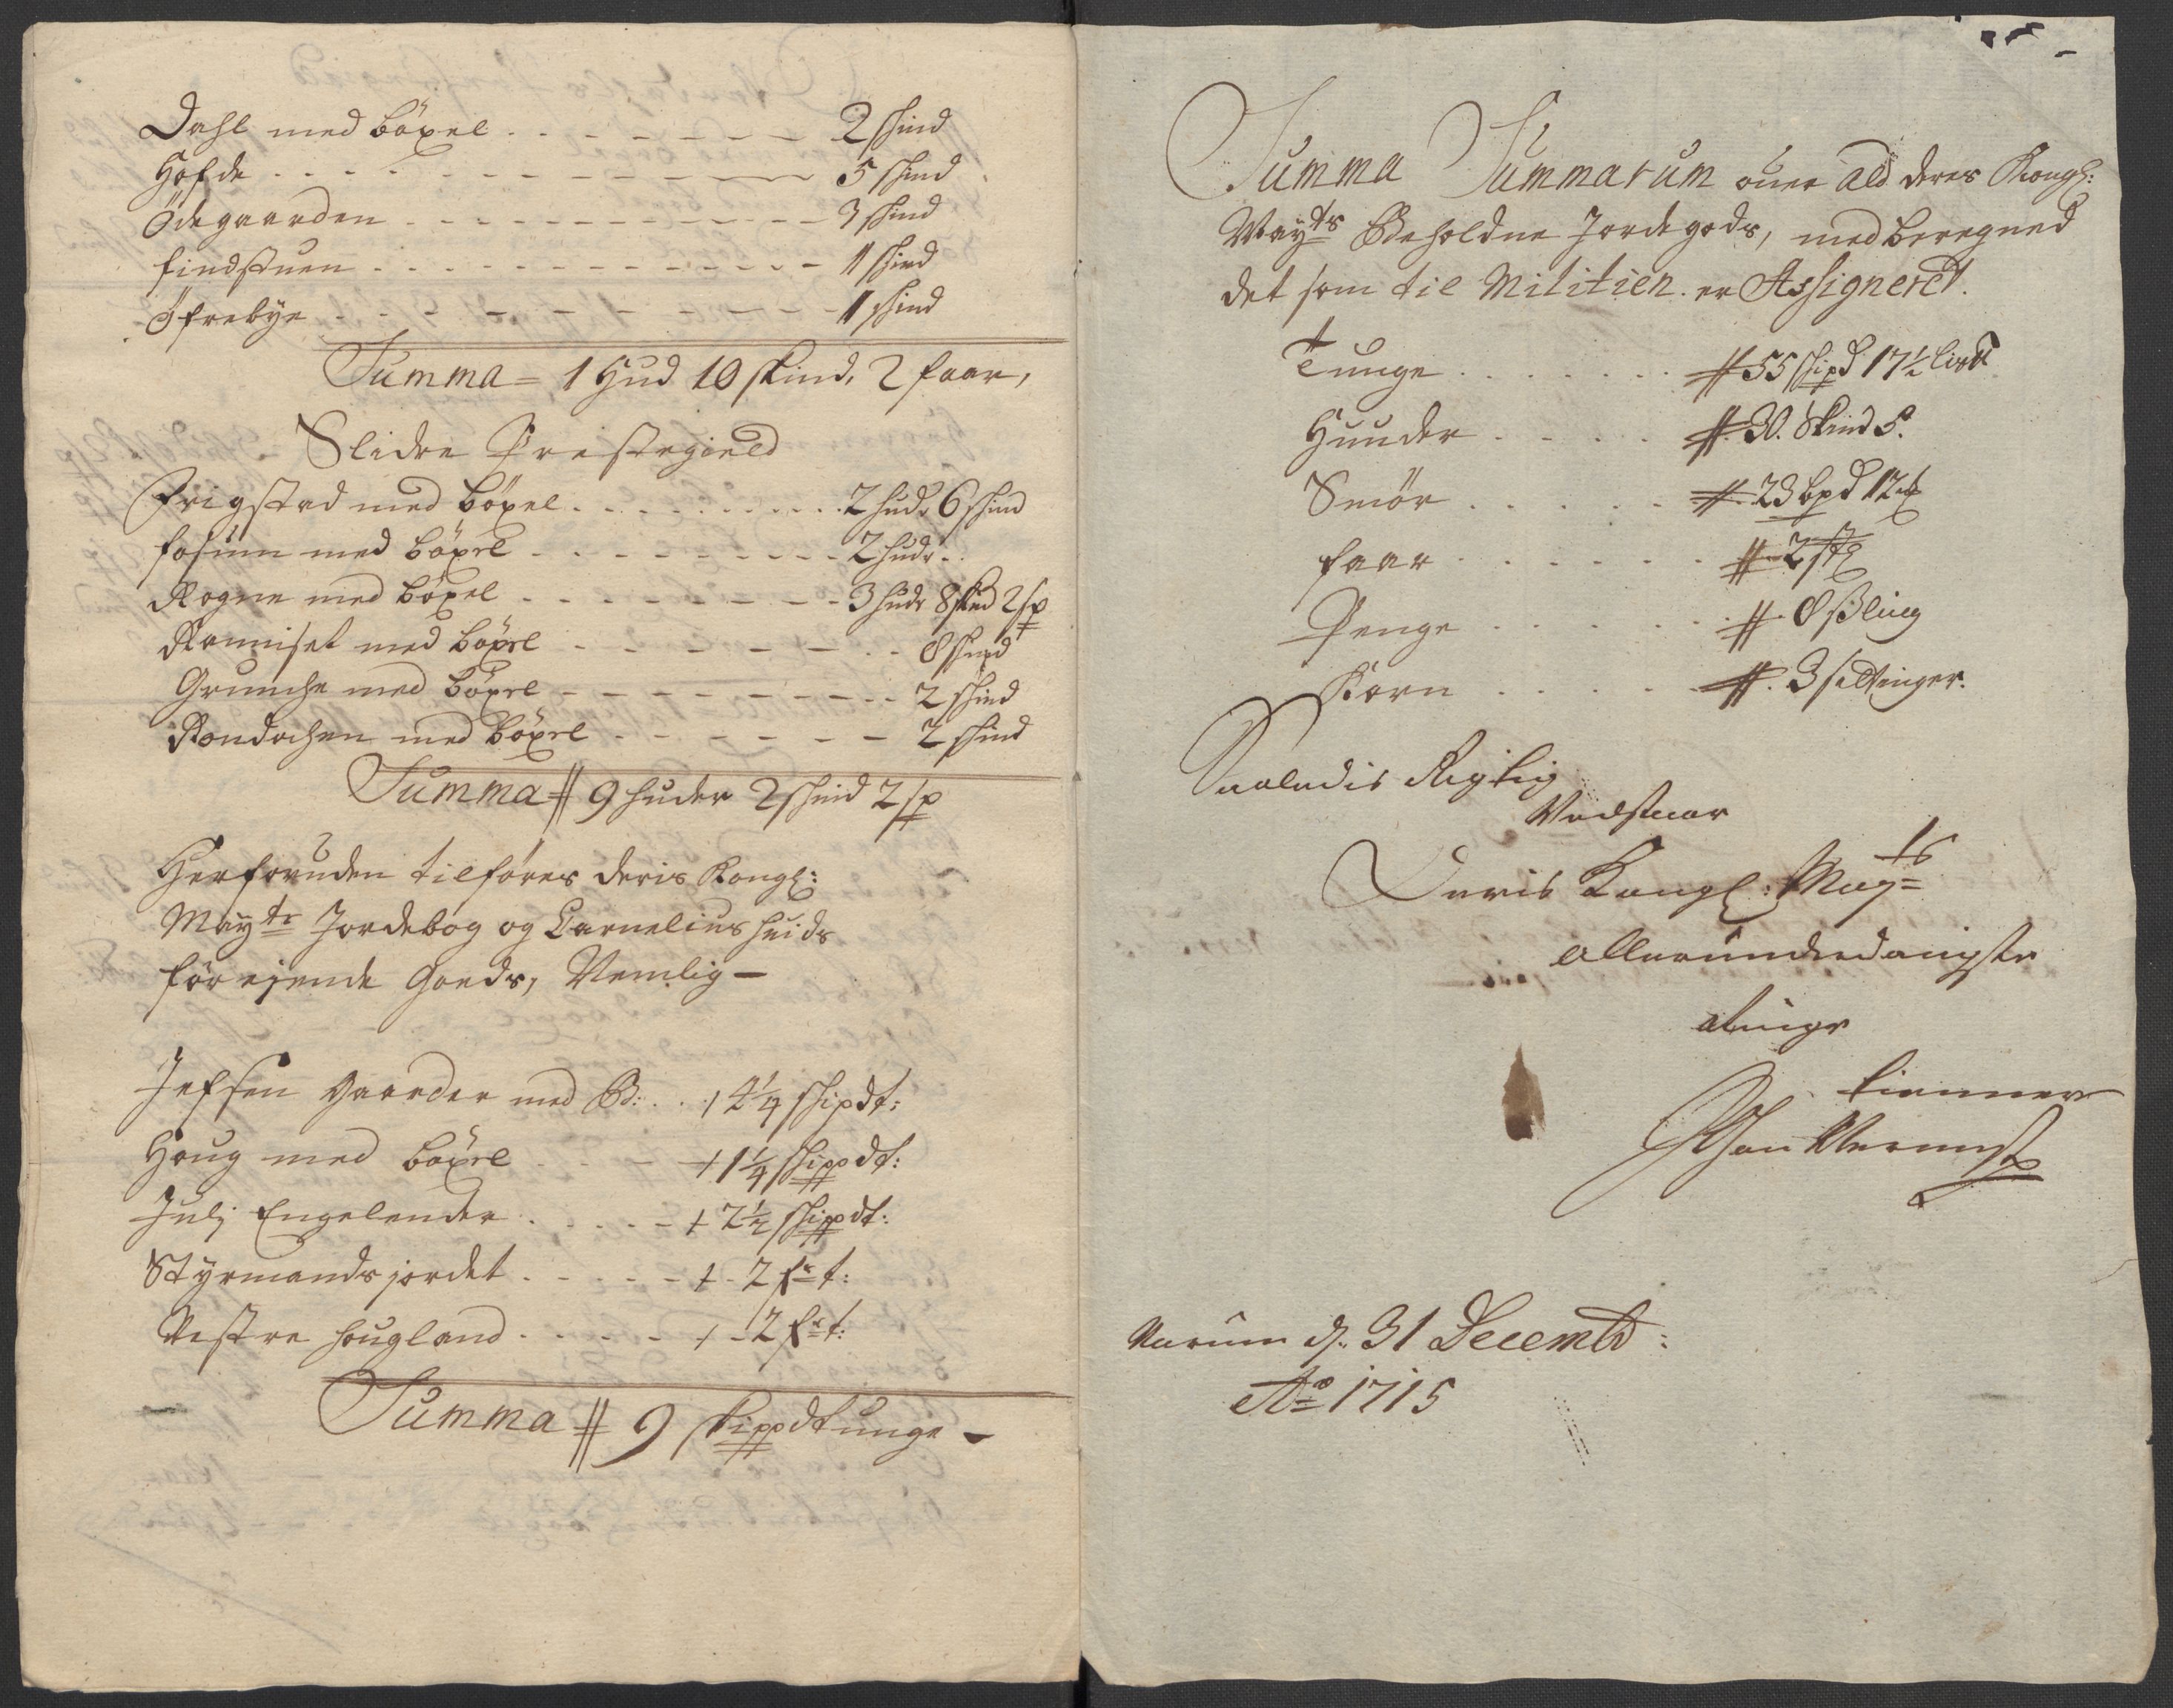 Dahl med böxel . . . . . . . 2 skind
Hofde . . . . . . . . . . 5 skind
Ödegaarden . . . . . . . . 3 skind
findstuen . . . . . . . . . 1 skind
Öfrebye . . . . . . . . . 1 skind
Summa = 1 Hud 10 skind, 2 faar,
Slidre Præstegield
Frigstad med böxel . . . . . . 2 hude 6 skind
fosum med böxel . . . . . . 2 hude
Rogne med böxel . . . . . . 3 hude 8 skind 2 sp
med böxel . . . . . . 8 skind
med böxel . . . . . . 2 skind
med böxel . . . . . . 2 skind
Summa # 9 huder 2 skind 2 sp
Herforuden tilføres deris Kongl:
Mayts Jordebog og Cornelius huids
för ejende Goeds, Nemlig —
Jefsen Gaarder med B: . . + 2 1/4 skipdt:
Houg med böxel . . . + 1 1/4 skippdt:
July Engelender . . . . + 2 1/2 skippdt:
Styrmandsjordet . . . . + 2 f t:
Vestre hougland . . . . + 2 f t:
Summa # 9 skippdtunge —
Summa Summarum ouer ald deres Kongl:
Mayts Beholdne Jordegods, med beregned
det som til Militien er Assigneret.
Tunge . . . . . . # 55 skipd 17 1/2 lis
Huuder . . . . # 30. Skind 5.
Smör . . . . . # 23 bpd 12
faar . . . . . . # 2 st
Penge . . . . . . # 8 sßling
Korn . . . . . # 3 settinger.
Saaledis Rigtig
Vedstaar
Deris Kongl: Mayts
allerunderdanigste
ringe
tienner
Narum d. 31 Decemb:
Ao 1715